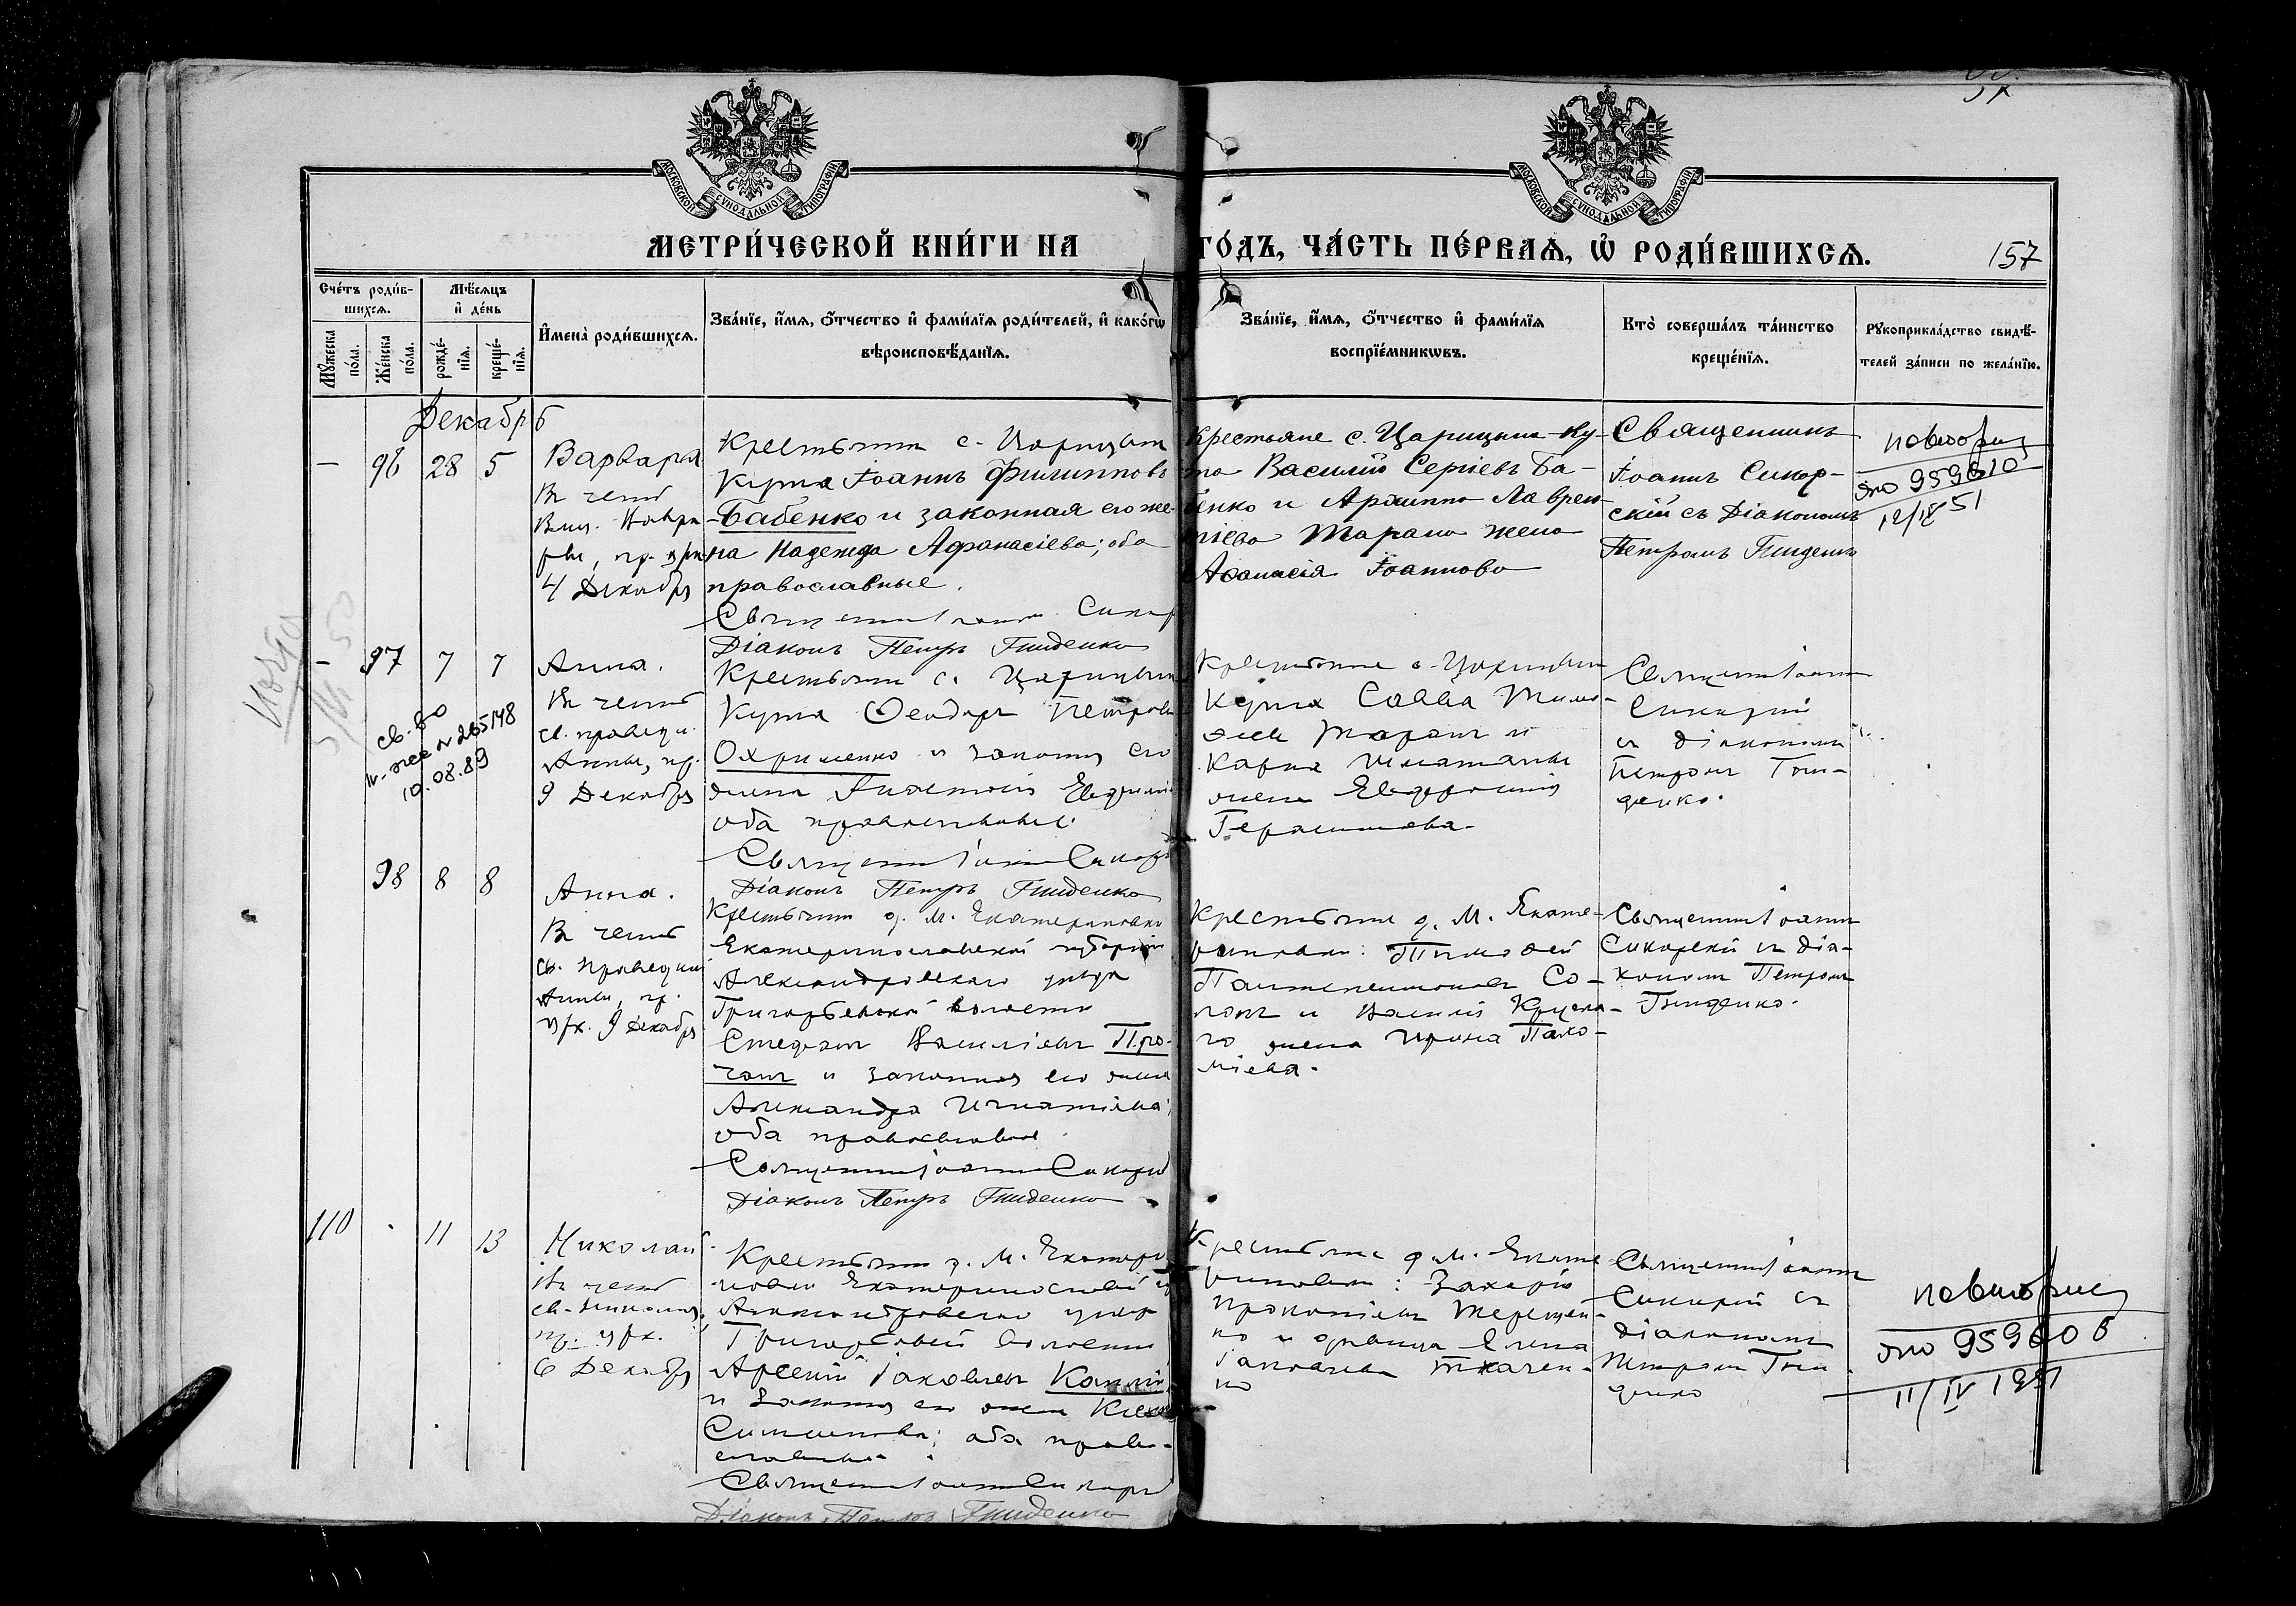 МОСКОВСКОЙ СѴНОДАЛЬНОЙ ТИПОГРАФІИ
МОСКОВСКОЙ СѴНОДАЛЬНОЙ ТИПОГРАФІИ
МЕТРИ́ЧЕСКОЙ КНИ́ГИ НА ГО́ДЪ, ЧА́СТЬ ПЕ́РВАѦ, Ѡ҆ РОДИ́ВШИХСѦ.
157
Сче́тъ роди́в-
шихсѧ.
Мꙋ́жеска по́ла.
Же́нска по́ла.
Мѣ́сѧцъ и҆ де́нь
рожде́-нїѧ.
креще́-нїѧ.
И҆мена̀ роди́вшихсѧ.
Зва́нїе, и҆́мѧ, ѻ҆́тчество и҆ фами́лїѧ роди́телей, и҆ како́гѡ
вѣроисповѣ́данїѧ.
Зва́нїе, и҆́мѧ, ѻ҆́тчество и҆ фами́лїѧ
воспрїе́мникѡвъ.
Кто̀ соверша́лъ та́инство
креще́нїѧ.
Рꙋкоприкла́дство свидѣ́-
телей за́писи по жела́нїю.
Декабрь
— 96 28 5
Варвара
Въ честь
4 Декабря
Крестьянин с. Царицын
Кута Іоаннъ Филипповъ
Бабенко и законная его же-
на Надежда Афанасіева; оба
православные.
Діаконъ Петръ Гниденко
Крестьяне с. Царицына-Ку-
та Василій Сергіевъ Ба-
бенко и Архиппа Лаврен-
тіева Тарана жена
Афанасія Іоаннова
Священникъ
Іоаннъ Сикор-
скій съ Діакономъ
Петромъ Гниденко
повторно
959610
12/IV 51
— 97 7 7
Анна.
Въ честь
св. праведн.
Анны, пр.
9 Декабря
св-во
№ 265148
10.08.89
Крестьянин с. Царицына
Кута Феодоръ Петровъ
Охрименко и законная его
жена Евфимія
оба православные.
Діаконъ Петръ Гниденко
Крестьяне с. Царицына
Кута Савва Тимо-
феевъ Таранъ и
Карпа Игнатьева
жена Евфросинія
Герасимова.
Священникъ Іоаннъ
Сикорскій
съ діакономъ
Петромъ Гни-
денко.
98 8 8
Анна.
Въ честь
св. праведн.
Анны, пр.
9 Декабря
Крестьянин д. М. Екатериновки
Екатеринославской губерніи
Александровскаго уезда
Григорьевской волости
Стефанъ Васильевъ
и законная его жена
Александра Игнатіева;
оба православные.
Священникъ Іоаннъ Сикорскій
Діаконъ Петръ Гниденко
Крестьяне д. М. Екате-
риновки: Тимофей
Пантелеимоновъ Со-
жена Ирина Пахо-
міева.
Священникъ Іоаннъ
Сикорскій съ діа-
кономъ Петромъ
Гниденко.
110 11 13
Николай.
Въ честь
св. Николая,
6 Декабря
Крестьянин д. М. Екатери-
новки Екатеринославской
Александровскаго уезда
Григорьевской волости
Арсеній Іаковлевъ
и законная его жена
Симеонова; оба право-
славные.
Священникъ Іоаннъ Сикорскій
Діаконъ Петръ Гниденко
Крестьяне д. М. Екате-
риновки: Захарій
Прокопіевъ Терещен-
ко и девица Елена
Іаковлева Ткачен-
ко
Священникъ Іоаннъ
Сикорскій съ
діакономъ
Петромъ Гни-
денко
повторно
11/IV 1951